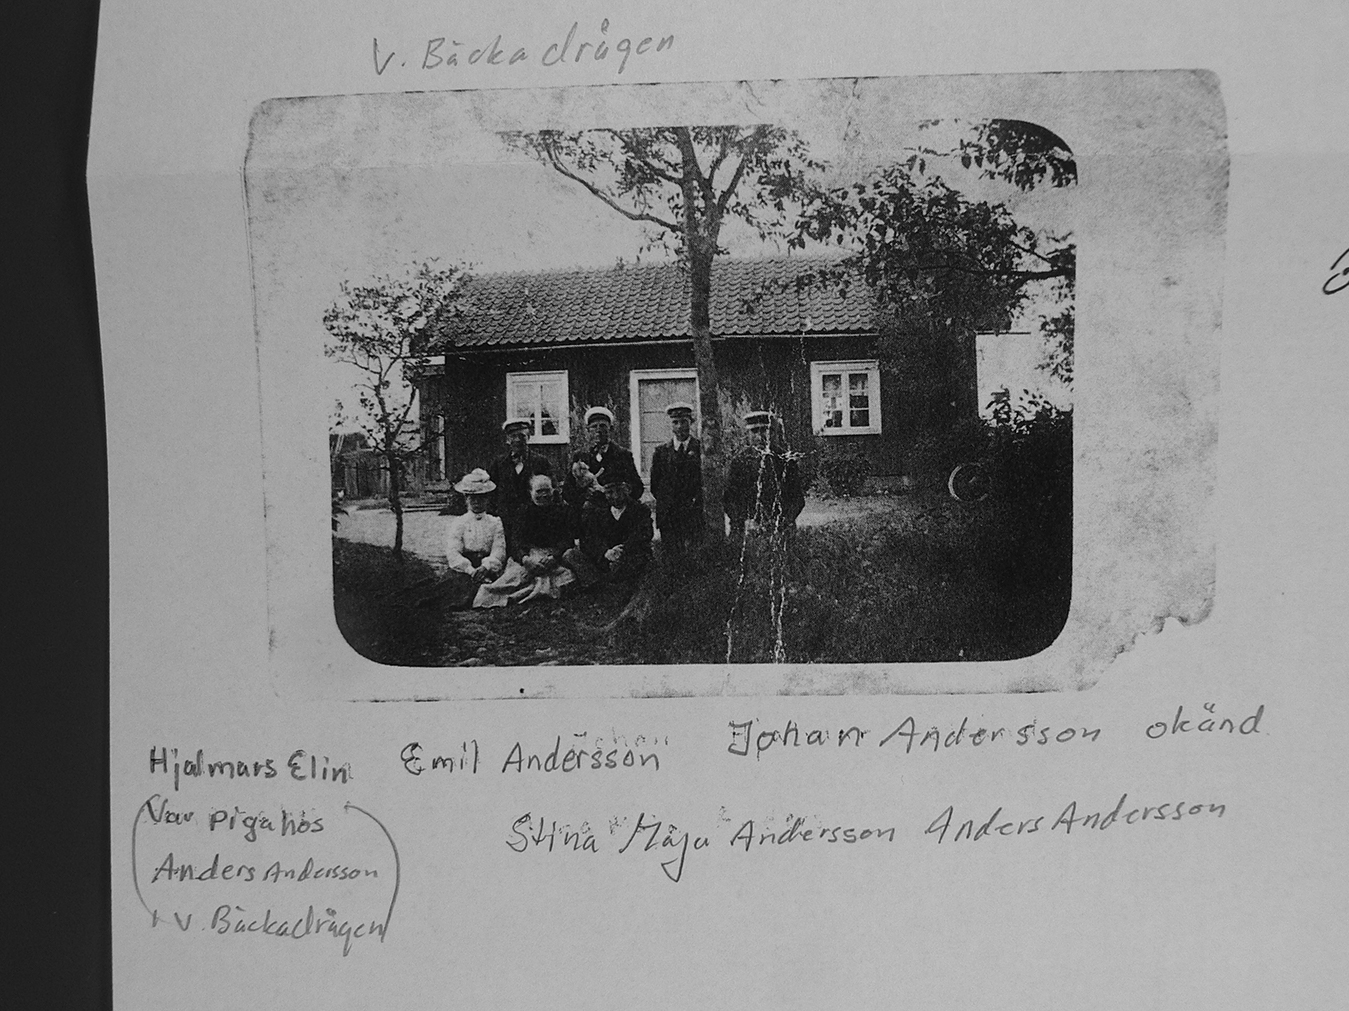 V. Bäckadrågen
Hjalmars Elin
Emil Andersson
Johan Andersson
okänd
Var piga hos
Anders Andersson
i V. Bäckadrågen
Stina Maja Andersson
Anders Andersson